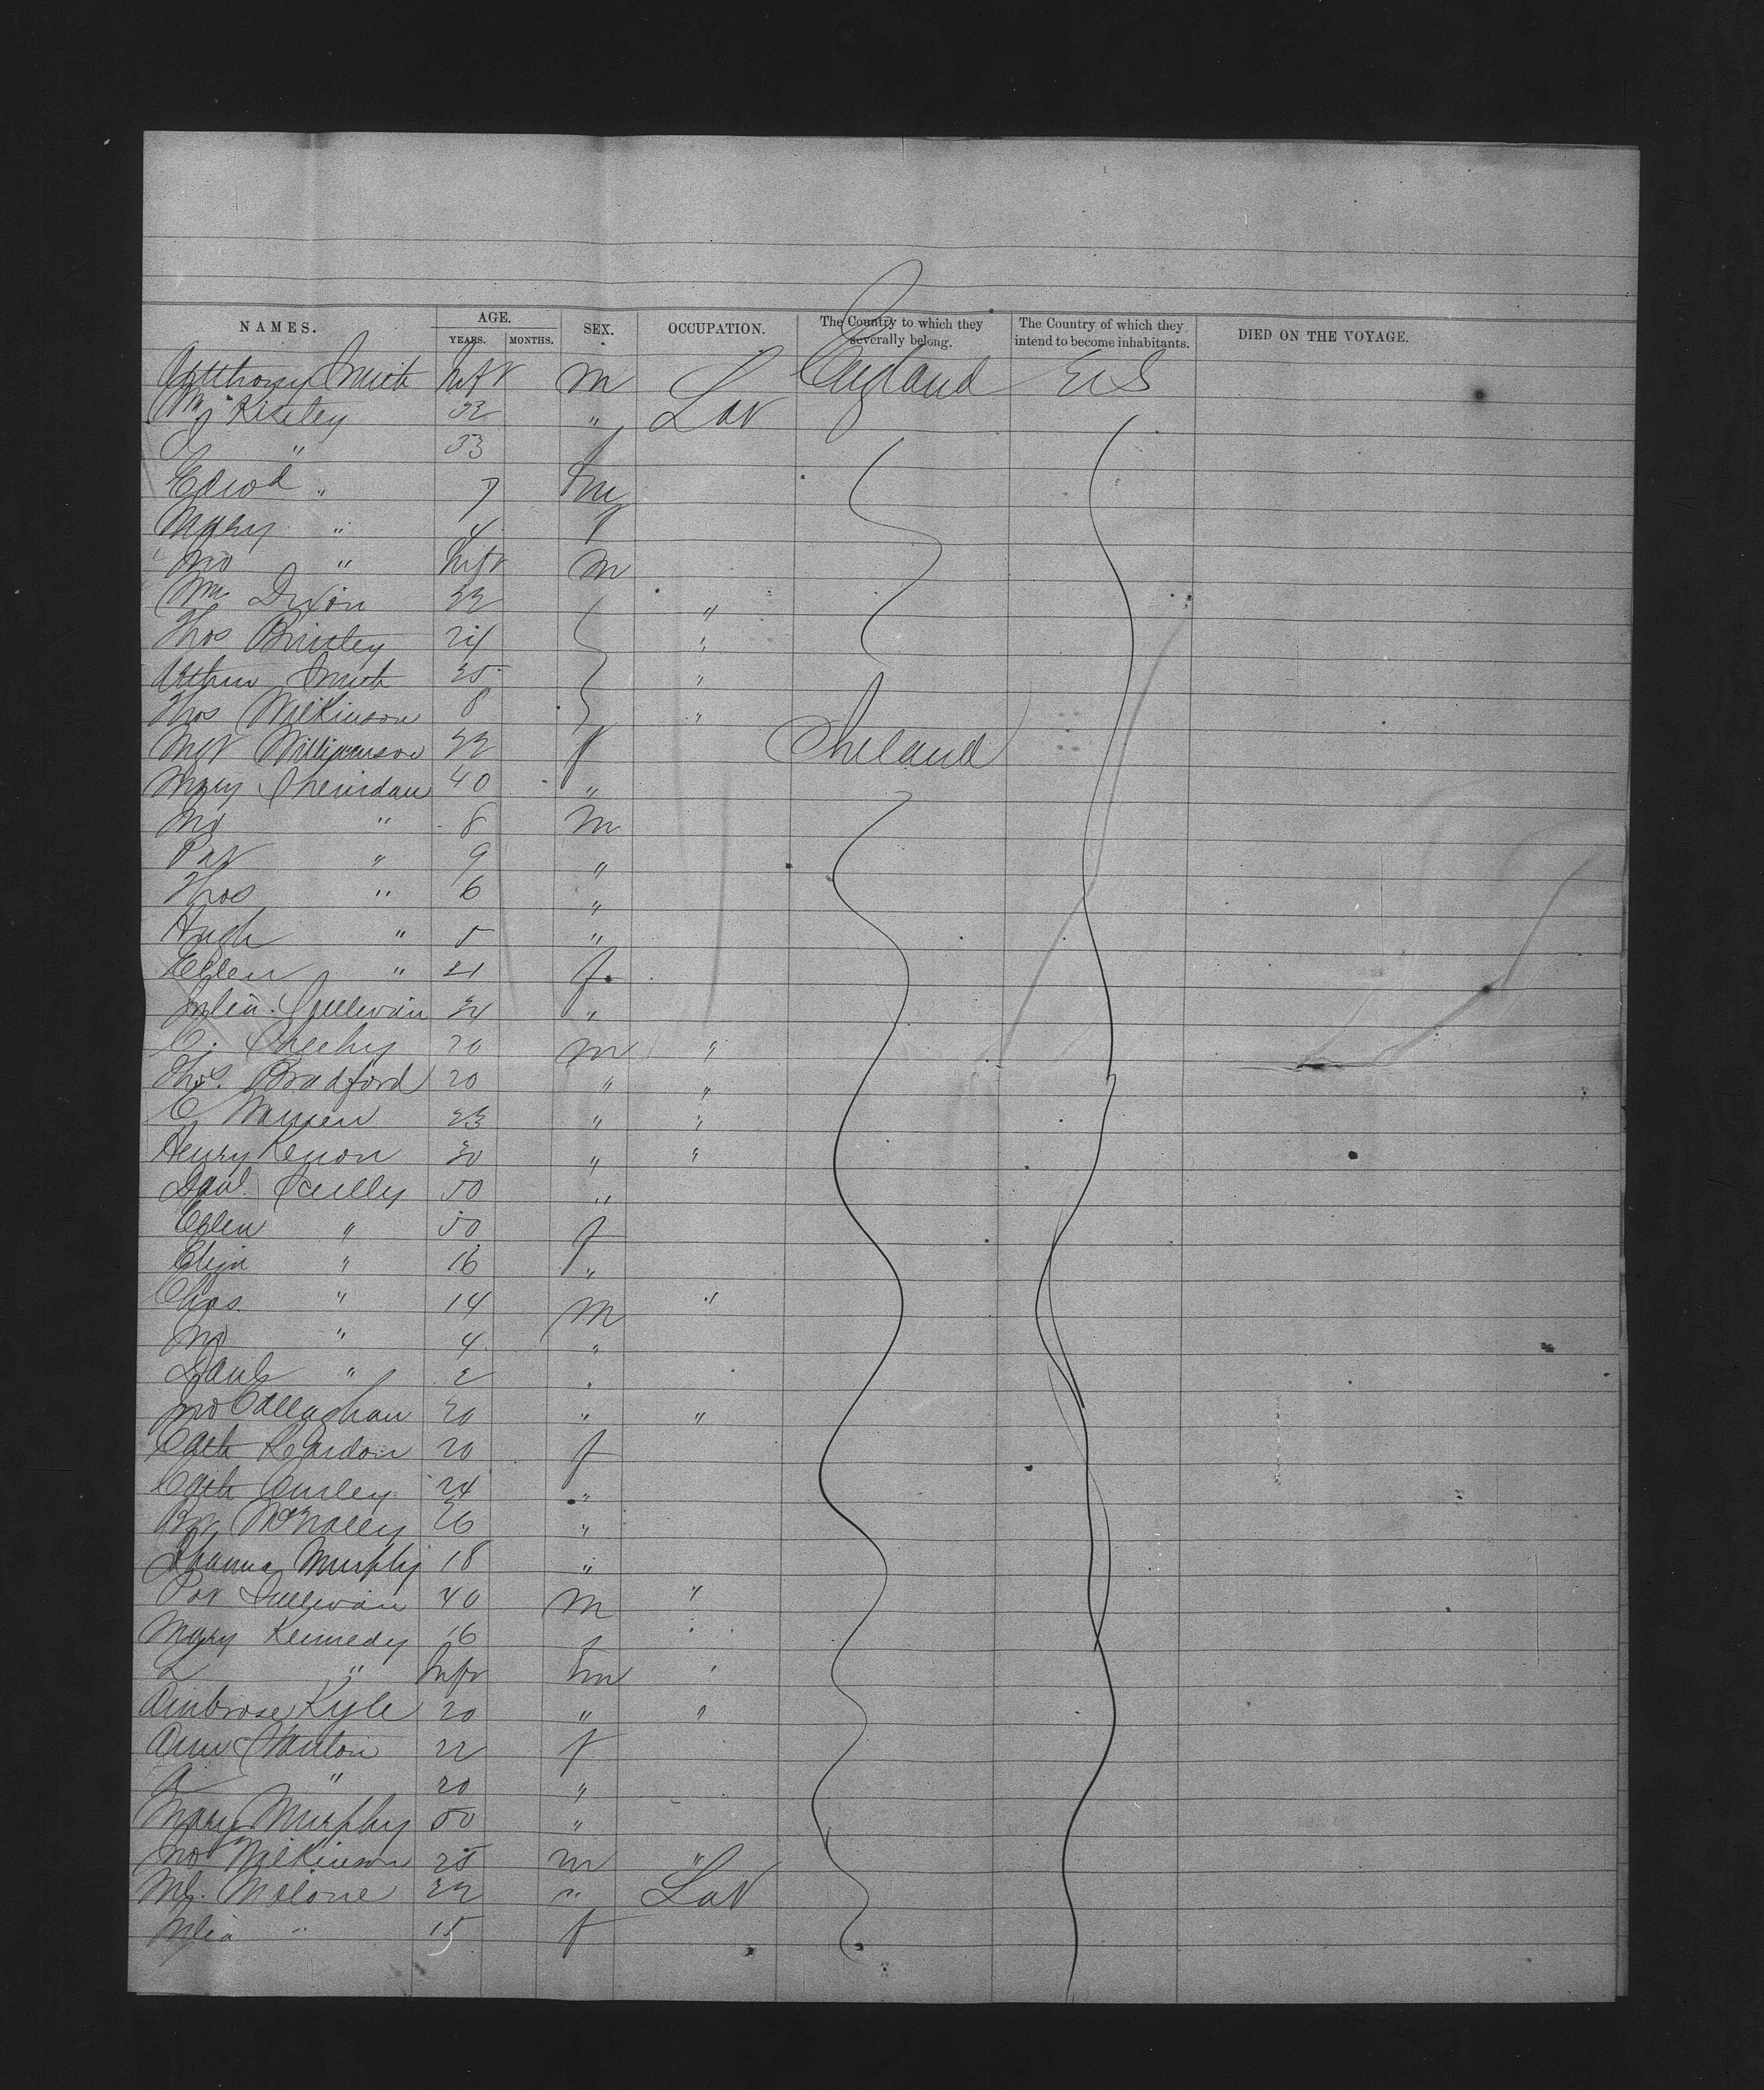 NAMES. AGE. SEX. OCCUPATION. The Country to which they severally belong. The Country of which they intend to become inhabitants. DIED ON THE VOYAGE.
YEARS. MONTHS.
Anthony Smith Inft m England U S
Kiseley 32 " Lab
" 33 f
Edwd " 7 m
Mary " 4 f
Jno " Inft m
Wm Dixon 22 "
Thos Brintley 24 "
Arthur Smith 25 "
Thos Wilkinson 8 "
Mgt Williamson 22 f Ireland
Mary Sheridan 40 "
Jno " 8 m
Pat " 9 "
Thos " 6 "
Hugh " 5 "
Ellen " 21 f
Julia Sullivan 24 "
C. Sheehy 20 m "
Thos. Bradford 20 " "
C 23 " "
Henry Kenon 30 " "
Danl Scully 50 "
Ellen " 50 f
Eliza " 16 "
Chas. " 14 m "
Jno " 4 "
Danl " 2 "
Jno Callaghan 20 " "
Cath Reardon 20 f
Cath Curley 24 "
McNally 26 "
Johanna Murphy 18 "
Pat Sullivan 40 m "
Mary Kennedy 16 f
" Inft m "
Ambrose Kyle 20 " "
Ann Stanton 22 f
A " 20 "
Mary Murphy 50 "
Jno Wilkinson 25 m "
Ml. Malone 22 " Lab
Julia " 15 f